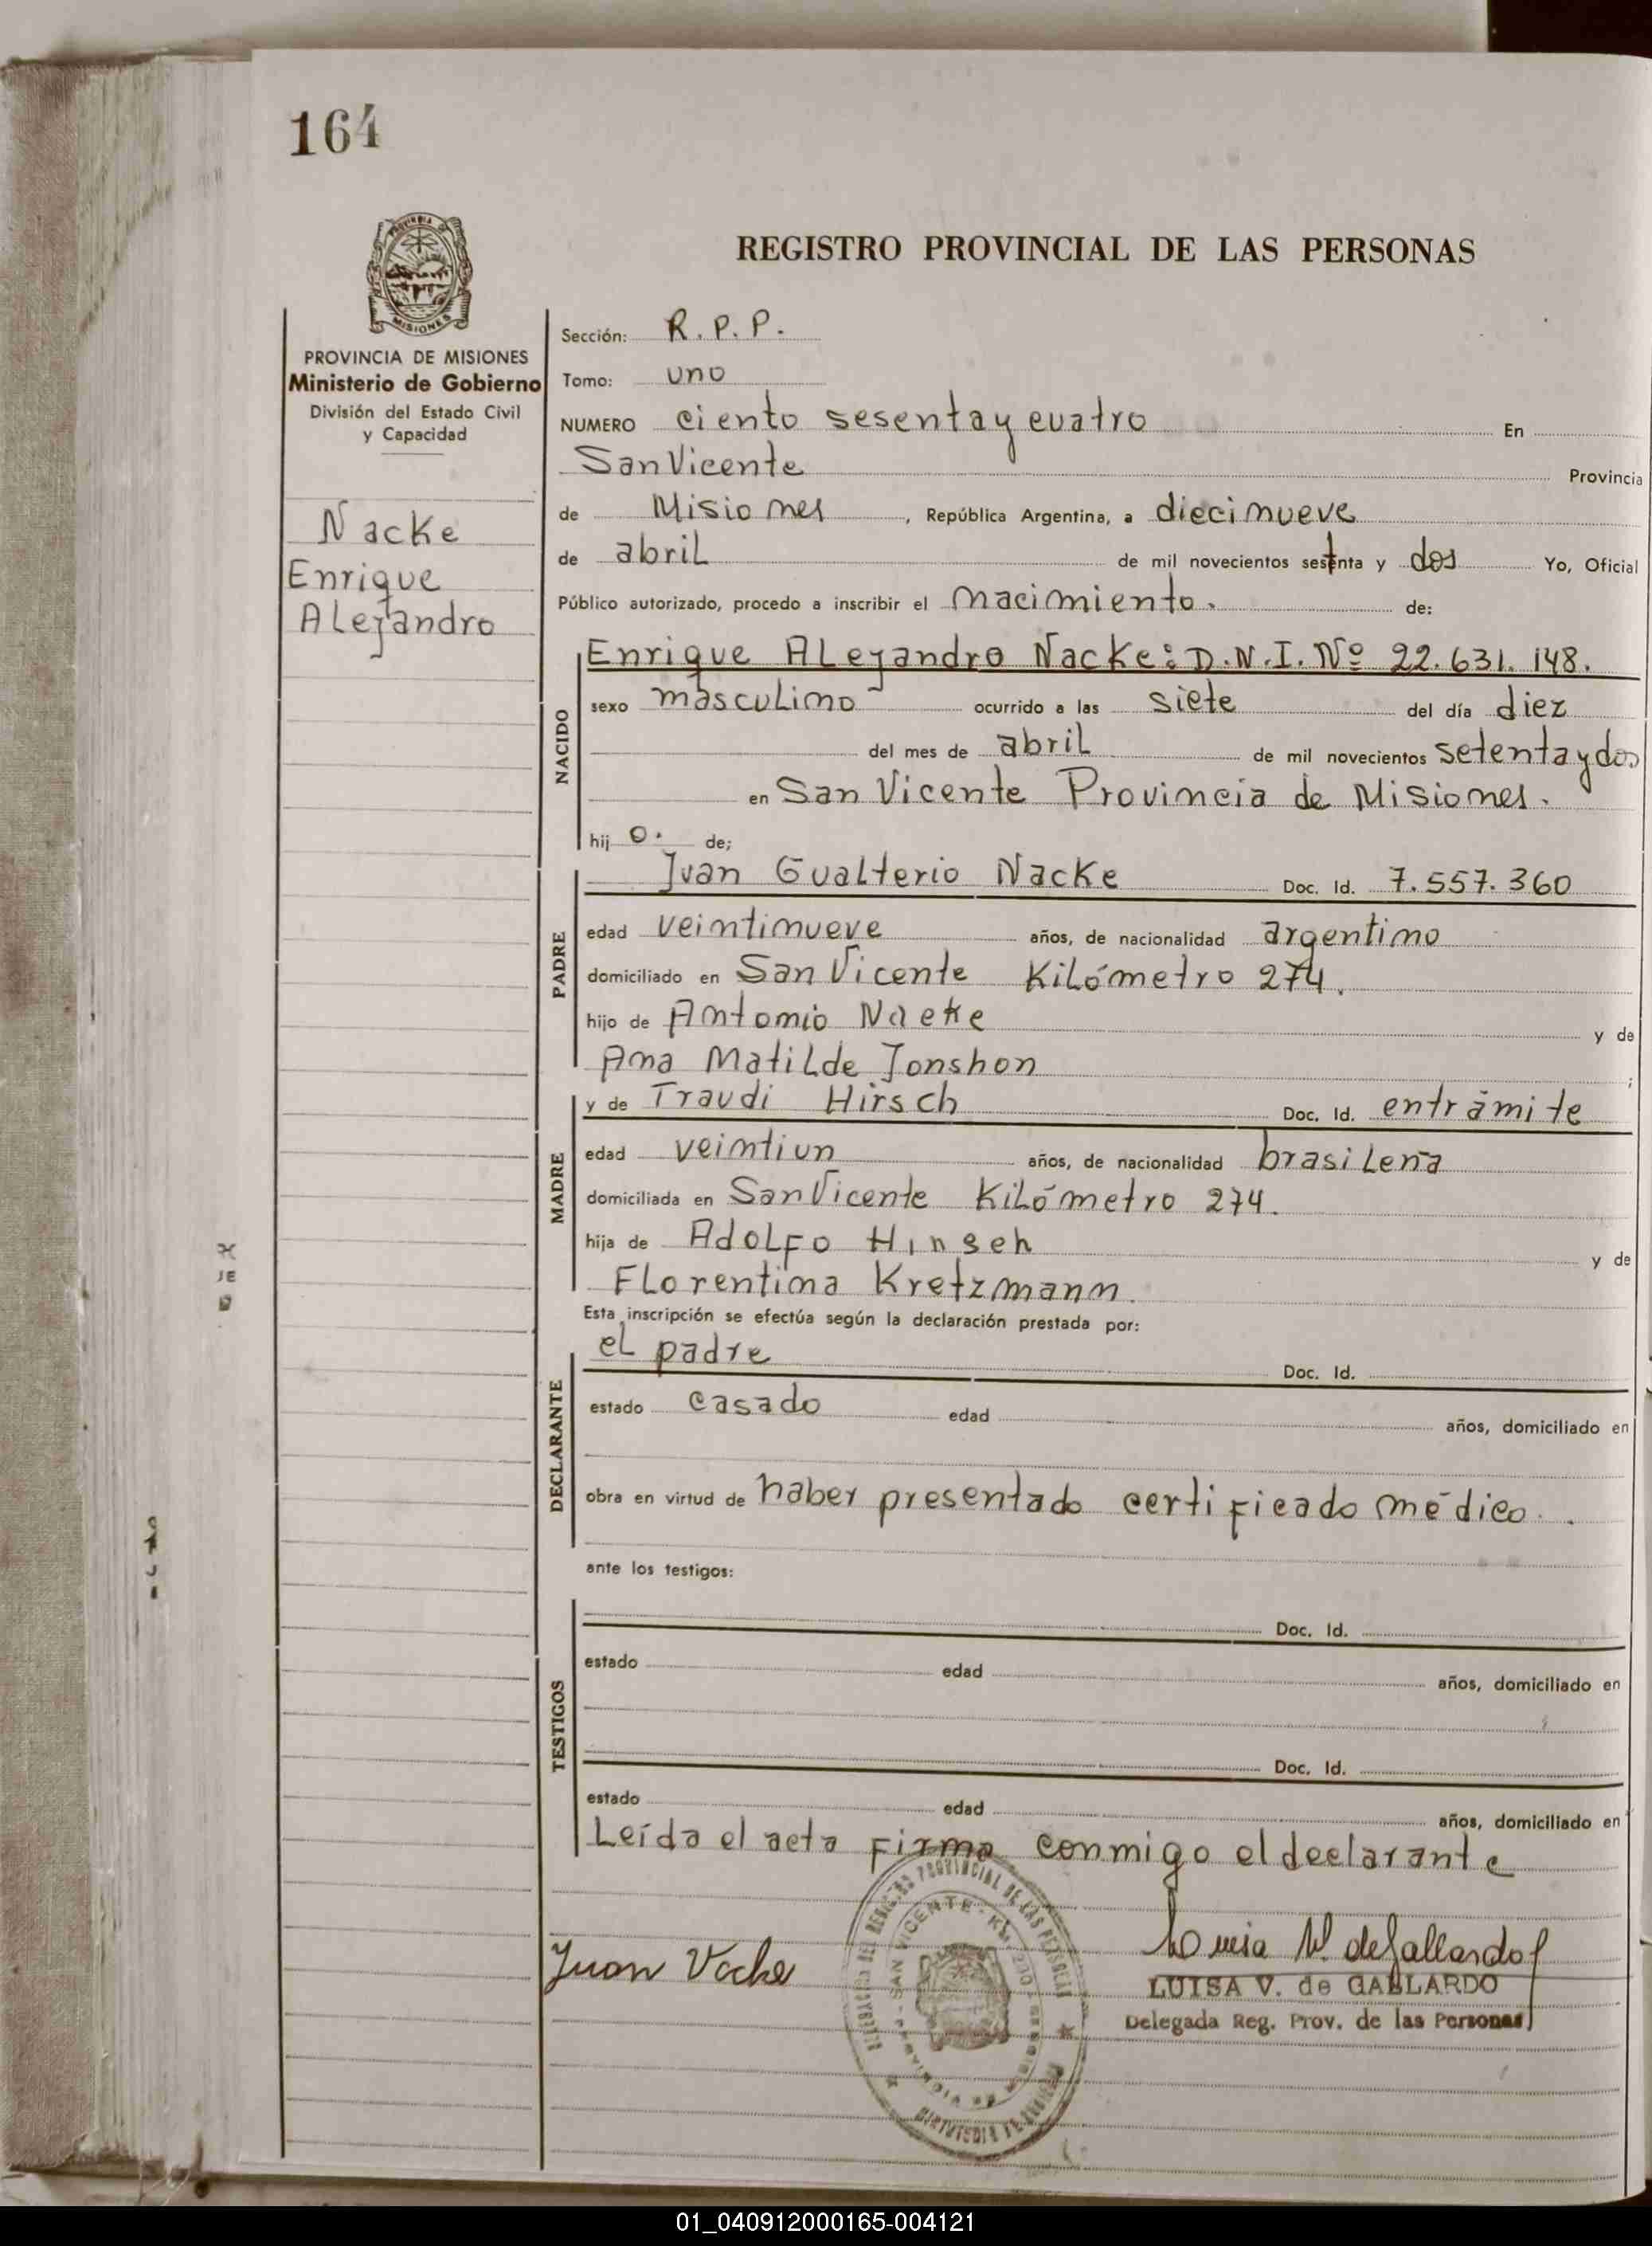 164
REGISTRO PROVINCIAL DE LAS PERSONAS
PROVINCIA
MISIONES
PROVINCIA DE MISIONES
Ministerio de Gobierno
División del Estado Civil
y Capacidad
Nacke
Enrique
Alejandro
Sección: R.P.P.
Tomo: uno
NUMERO ciento sesenta y cuatro En
San Vicente Provincia
de Misiones, República Argentina, a diecinueve
de abril de mil novecientos setenta y dos Yo, Oficial
Público autorizado, procedo a inscribir el nacimiento. de:
NACIDO
Enrique Alejandro Nacke: D.N.I. Nº 22.631.148.
sexo masculino ocurrido a las siete del día diez
del mes de abril de mil novecientos setenta y dos
en San Vicente Provincia de Misiones.
hijo. de;
PADRE
Juan Gualterio Nacke Doc. Id. 7.557.360
edad veintinueve años, de nacionalidad argentino
domiciliado en San Vicente Kilómetro 274.
hijo de Antonio Nacke y de
Ana Matilde Jonshon ;
MADRE
y de Traudi Hirsch Doc. Id. en trámite
edad veintiun años, de nacionalidad brasileña
domiciliada en San Vicente Kilómetro 274.
hija de Adolfo Hinsch y de
Florentina Kretzmann.
Esta inscripción se efectúa según la declaración prestada por:
DECLARANTE
el padre Doc. Id.
estado casado edad años, domiciliado en
obra en virtud de haber presentado certificado médico.
ante los testigos:
TESTIGOS
Doc. Id.
estado edad años, domiciliado en
Doc. Id.
estado edad años, domiciliado en
Leída el acta firma conmigo el declarante
Juan Nacke
Luisa V. de Gallardo
LUISA V. de GALLARDO
Delegada Reg. Prov. de las Personas
REGISTRO PROVINCIAL DE LAS PERSONAS
SAN VICENTE
01_040912000165-004121